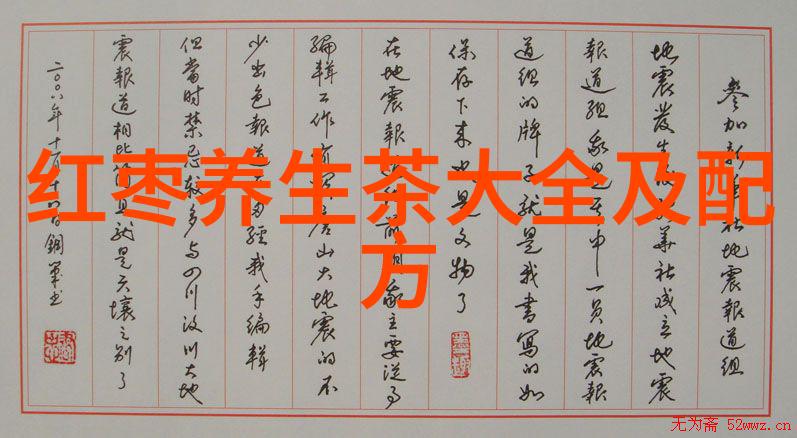 红枣养生茶大全及配
方
参加新华社地震报道组
地震发生后新华社成立地震
报道组我是其中一员地震报
道组的牌子就是我书写的如
保存下来也是文物了
在地震报道组前期我主要从事
编辑工作唐山大地震的不
少出色报道曾经我手编辑
但当时禁忌较多与四川汶川大地
震报道相比简直就是天壤之别了
二〇〇八年十一月十六日钢笔书
无为斋 52wwz.cn